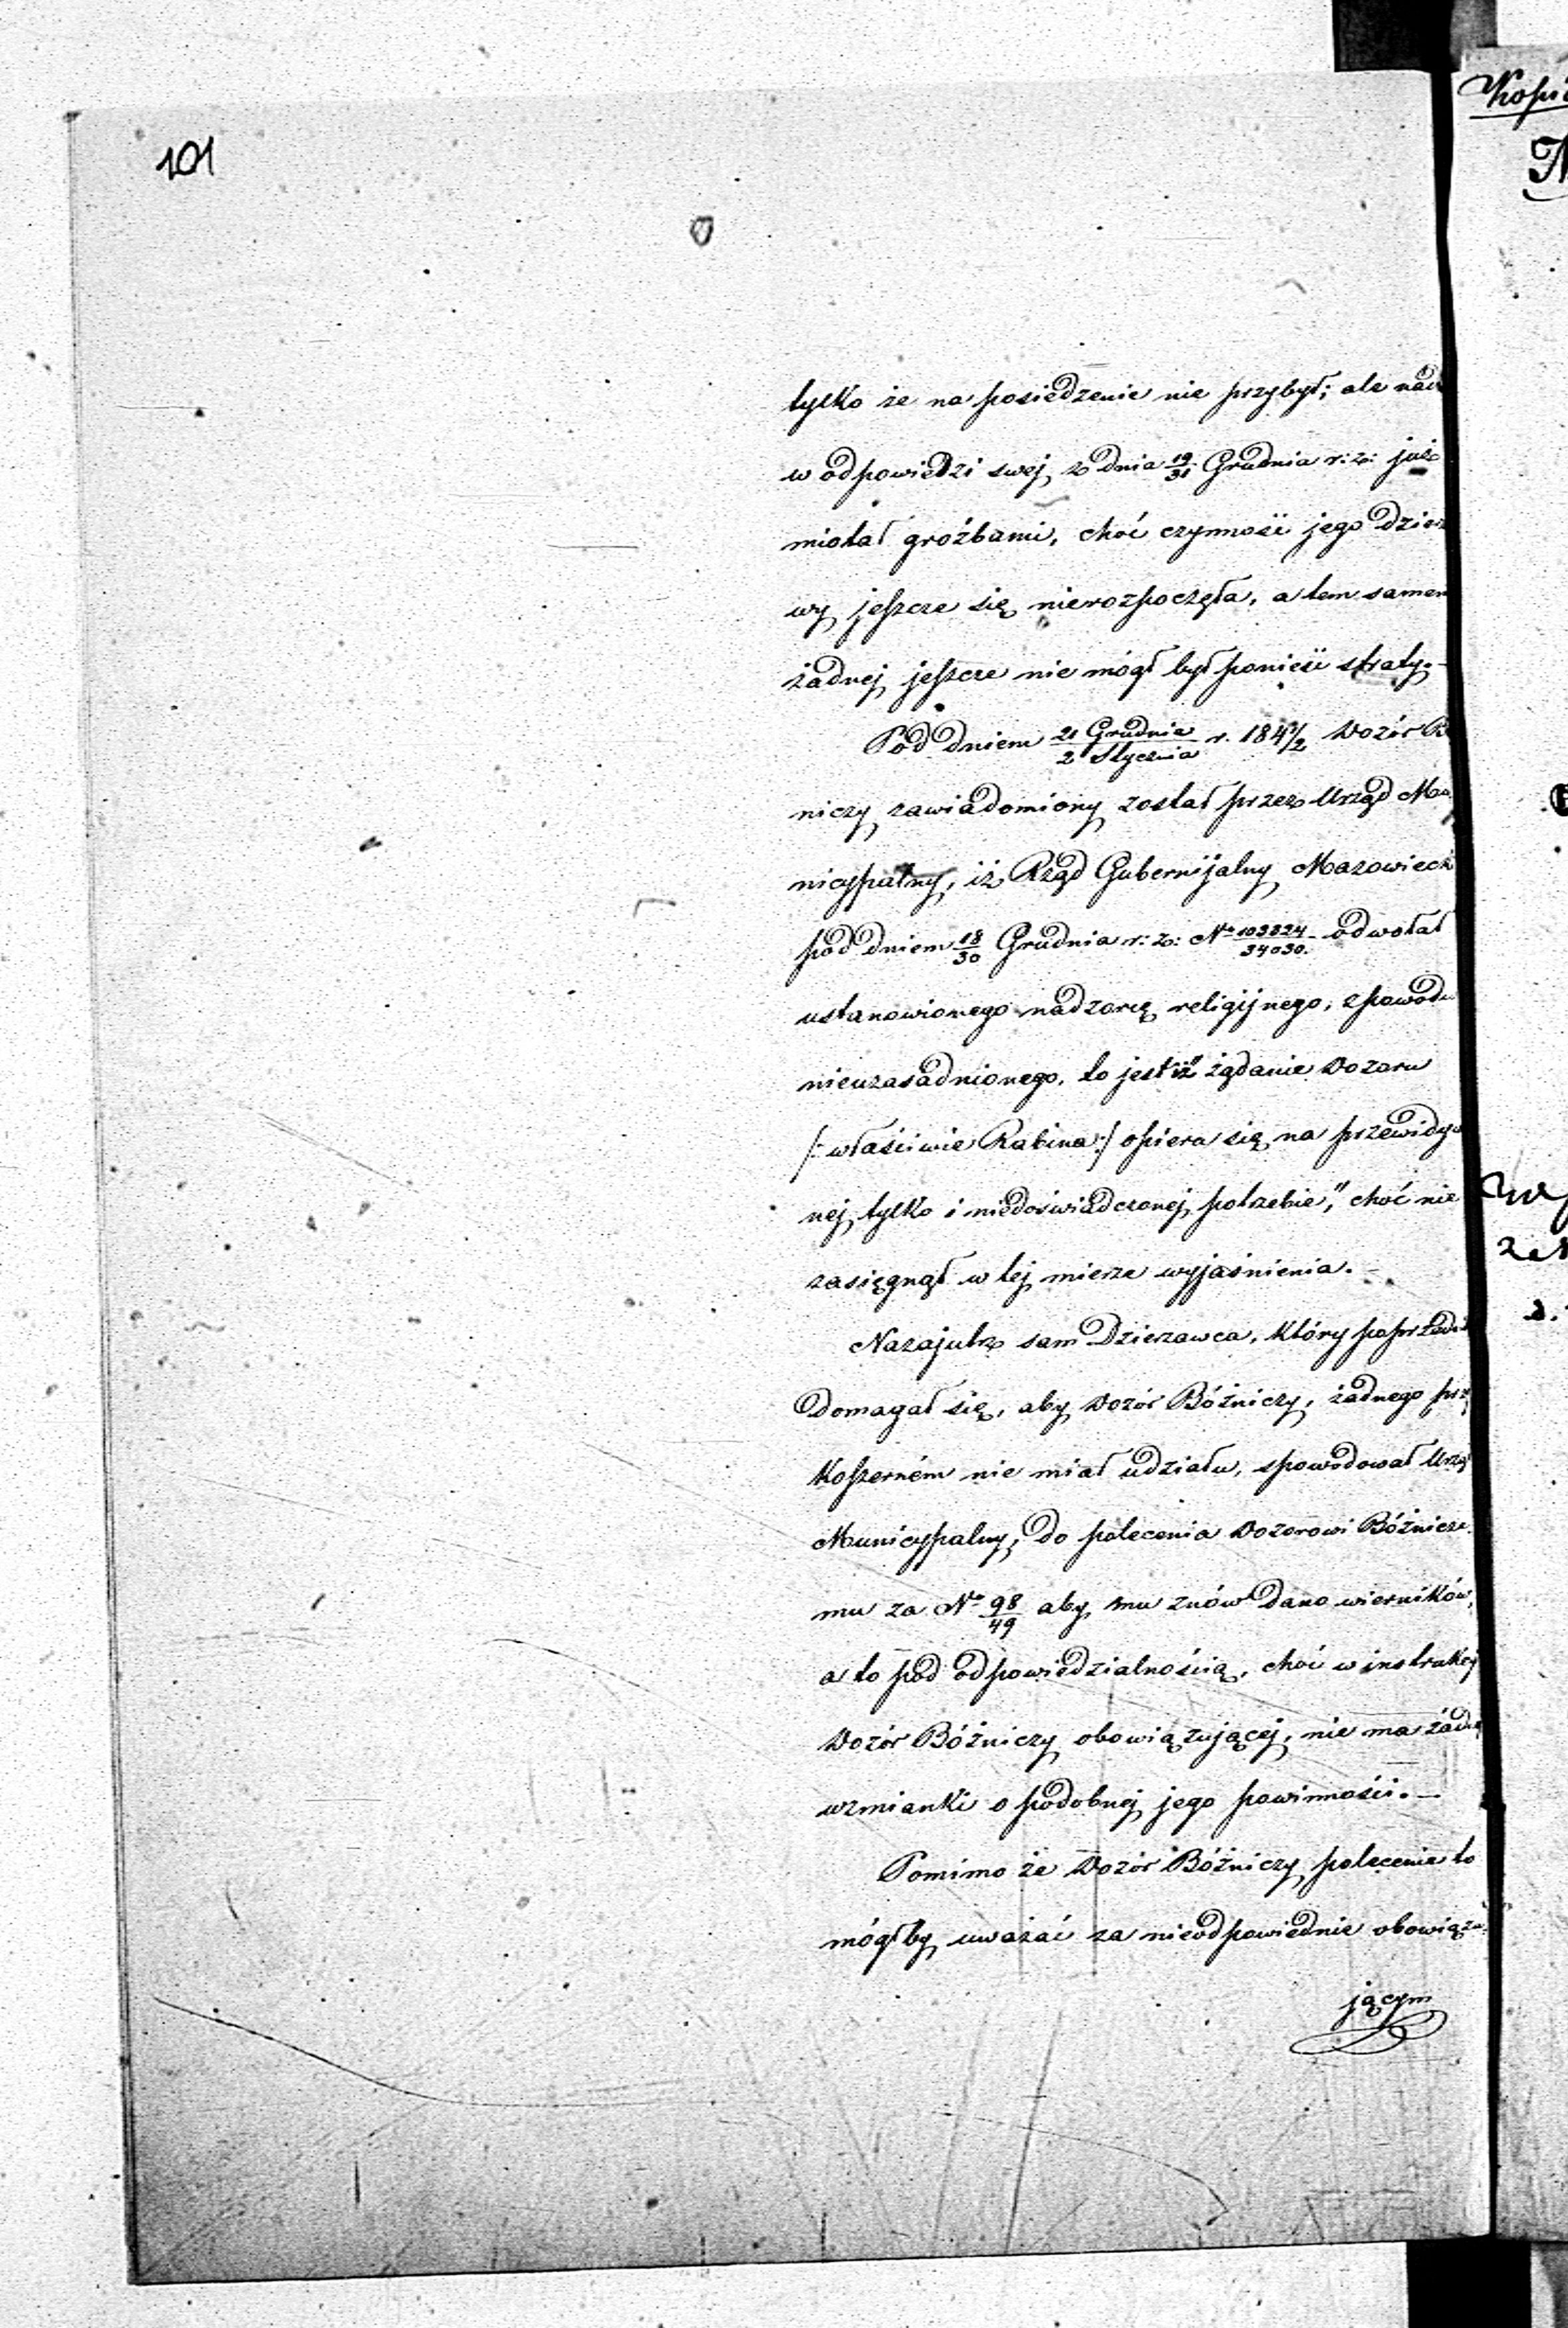 101
tylko że na posiedzenie nie przybył; ale nad
w odpowiedzi swej z dnia 19/31 Grudnia r: z: już
miotał groźbami, choć czynność jego dzier
wy jeszcze się nierozpoczęła, a tem samem
żadnej jeszcze nie mógł był ponieść straty.-
Pod dniem 21 Grudnia/2 Stycznia r. 184 1/2 Dozór B
niczy zawiadomiony został przez Urząd Mu
nicypalny, iż Rząd Gubernijalny Mazowieck
pod dniem 18/30 Grudnia r: z: No 103324/34030. odwołał
ustanowionego nadzorcę religijnego, z powodu
nieuzasadnionego, to jest iż" żądanie Dozoru
/: właściwie Rabina :/ opiera się na przewidyw
nej tylko i niedoświadczonej potrzebie," choć nie
zasięgnął w tej mierze wyjaśnienia. -
Nazajutrz sam Dzierzawca, który poprzed
domagał się, aby Dozór Bóżniczy, żadnego prz
koszerném nie miał udziału, spowodował Urzą
Municypalny, do polecenia Dozorowi Bóżnicze
mu za No 98/49 aby mu znów dano wierników,
a to pod odpowiedzialnością, choć w instrukcj
Dozór Bóżniczy obowiązującej, nie ma żadn
wzmianki o podobnej jego powinności. -
Pomimo że Dozór Bóżniczy polecenie to
mógłby uważać za nieodpowiednie obowiązu
jącym
Kopi